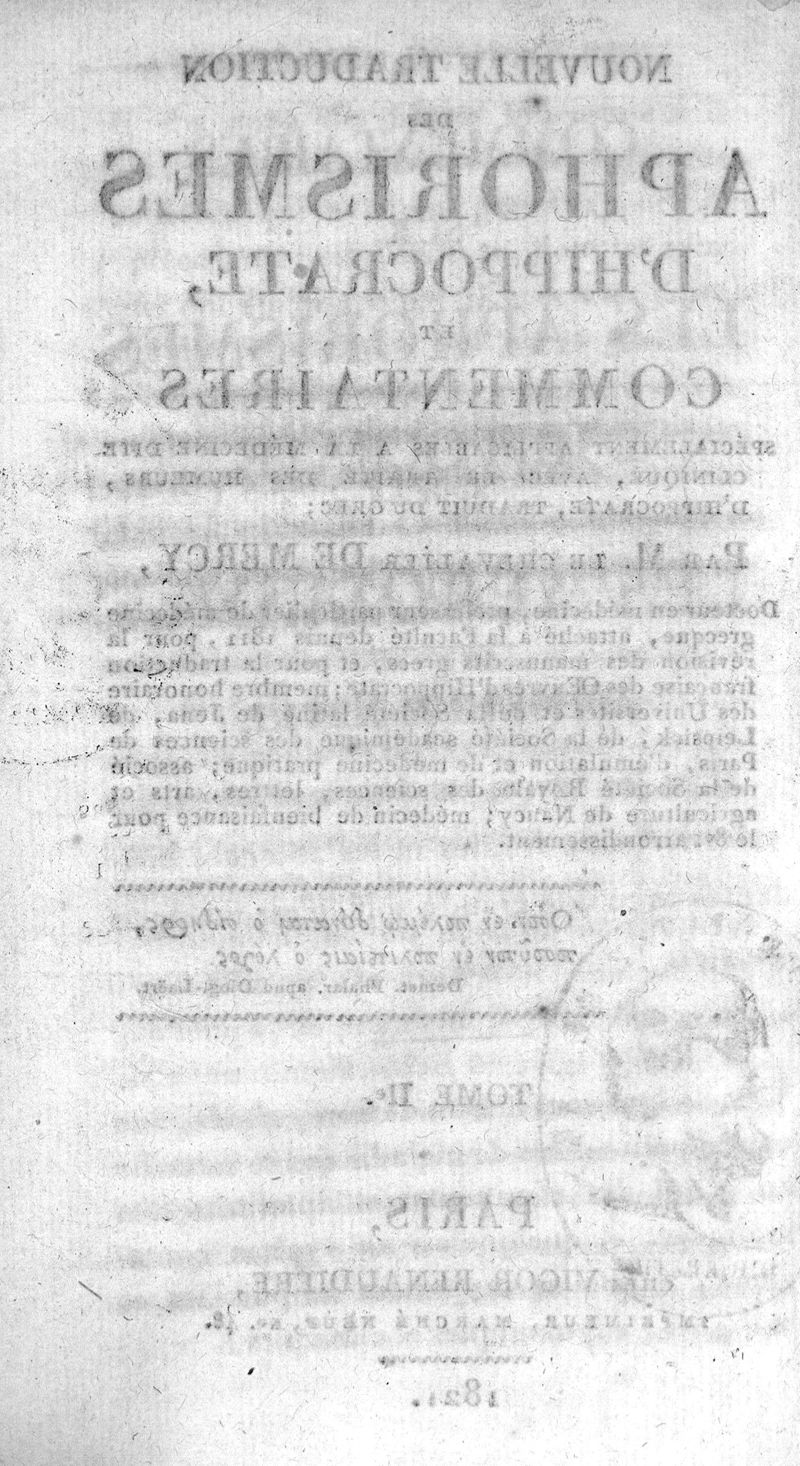 NOUVELLE TRADUCTION
DES
APHORISMES
D'HIPPOCRATE,
ET
COMMENTAIRES
SPÉCIALEMENT APPLICABLES A LA MÉDECINE DITE
CLINIQUE, AVEC LE TRAITÉ DES HUMEURS,
D'HIPPOCRATE, TRADUIT DU GREC;
PAR M. LE CHEVALIER DE MERCY,
Docteur en médecine, professeur particulier de médecine
grecque, attaché à la Faculté depuis 1811, pour la
révision des manuscrits grecs, et pour la traduction
française des Œuvres d'Hippocrate; membre honoraire
des Universités et de la Société latine de Jena, de
Leipsick; de la Société académique des sciences de
Paris, d'émulation et de médecine pratique; associé
de la Société Royale des sciences, lettres, arts et
agriculture de Nancy; médecin de bienfaisance pour
le arrondissement.
ἐν πολέμῳ δύναται ὁ σίδηρος,
τοσοῦτον ἐν πολιτείαις ὁ λόγος.
Demet. Phalar. apud Diog. Laërt.
TOME IIe.
PARIS,
VIGOR RENAUDIERE,
IMPRIMEUR, MARCHÉ NEUF,
1821.